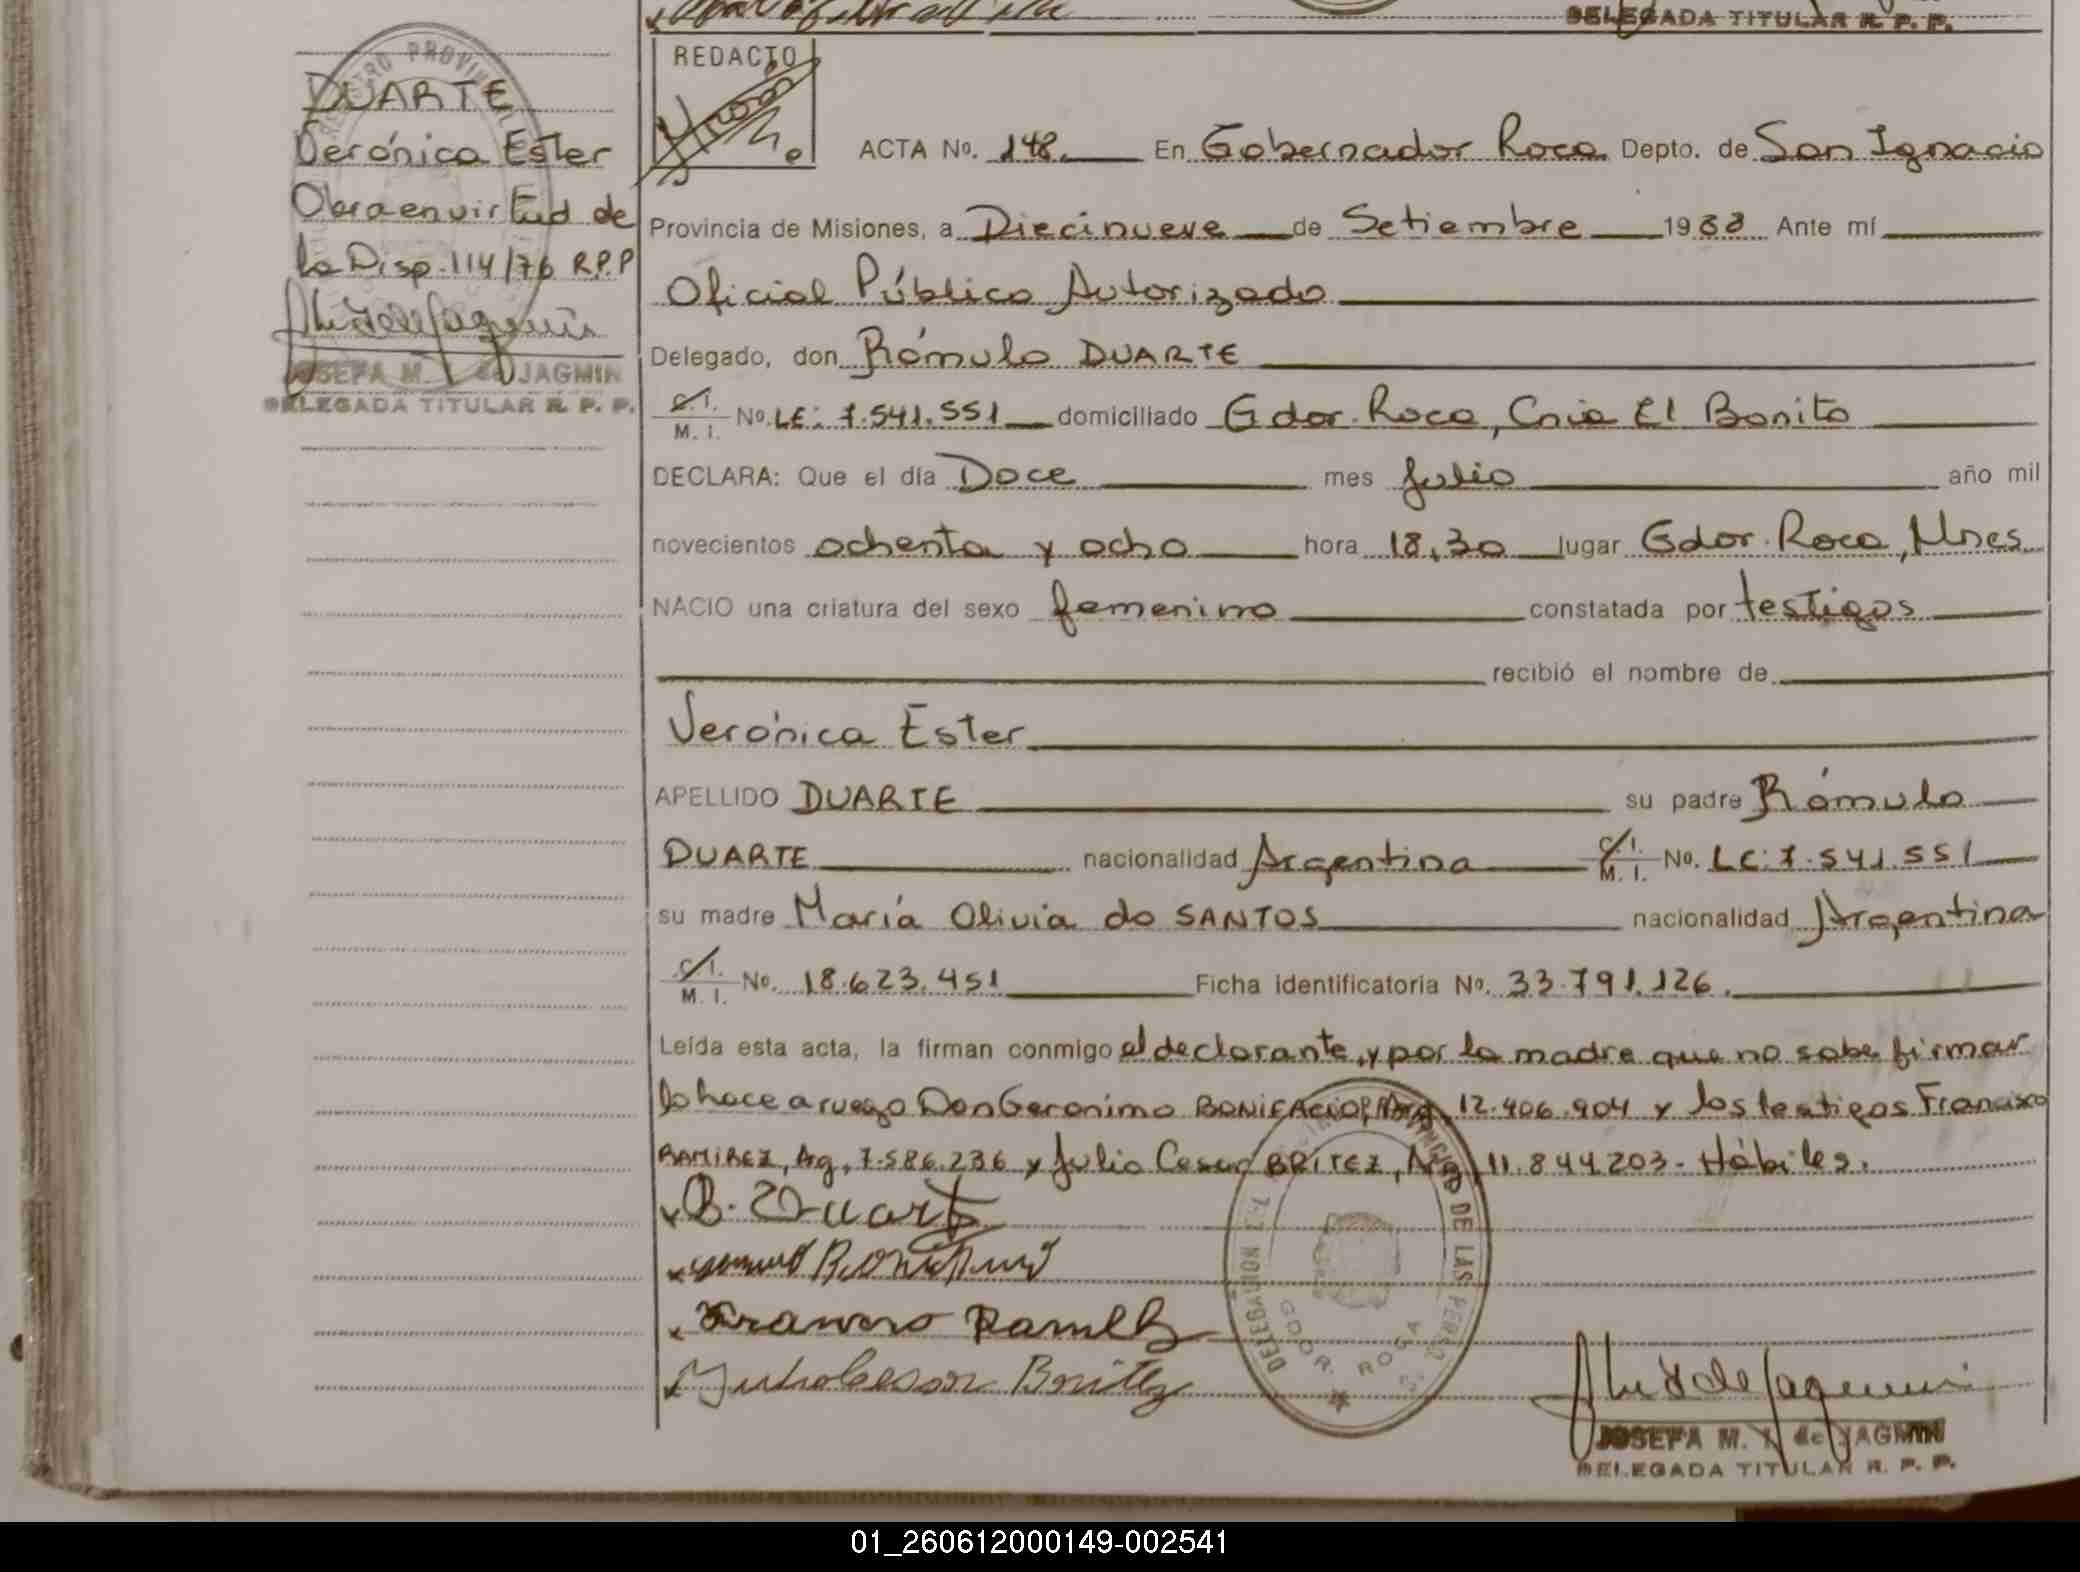 DELEGADA TITULAR R. P. P.
REGISTRO PROVINCIAL
DUARTE
Verónica Ester
Obra en virtud de
la Disp. 114/76 R.P.P
JOSEFA M. de JAGMIN
DELEGADA TITULAR R. P. P.
REDACTO
ACTA No. 148. En Gobernador Roca Depto. de San Ignacio
Provincia de Misiones, a Diecinueve de Setiembre 1988 Ante mí
Oficial Público Autorizado
Delegado, don Rómulo DUARTE
C.I. M.I. No. LE: 7.541.551 domiciliado Gdor. Roca, Cnia El Bonito
DECLARA: Que el día Doce mes Julio año mil
novecientos ochenta y ocho hora 18,30 lugar Gdor. Roca, Mnes.
NACIO una criatura del sexo femenino constatada por testigos
recibió el nombre de
Verónica Ester
APELLIDO DUARTE su padre Rómulo
DUARTE nacionalidad Argentina C.I. M.I. No. LE: 7.541.551
su madre María Olivia do SANTOS nacionalidad Argentina
C.I. M.I. No. 18.623.451 Ficha identificatoria No. 33.791.126.
Leída esta acta, la firman conmigo el declarante, y por la madre que no sabe firmar
lo hace a ruego Don Geronimo BONIFACIO, Arg. 12.406.904 y los testigos Francisco
RAMIREZ, Arg, 7.586.236 y Julio Cesar BRITEZ, Arg 11.844.203- Hábiles.
R. Duarte
Bonifacio
Francisco Ramirez
Julio Cesar Britez
DELEGACION
DE LAS PERSONAS
GDOR. ROCA
JOSEFA M. I. de JAGMIN
DELEGADA TITULAR R. P. P.
01_260612000149-002541